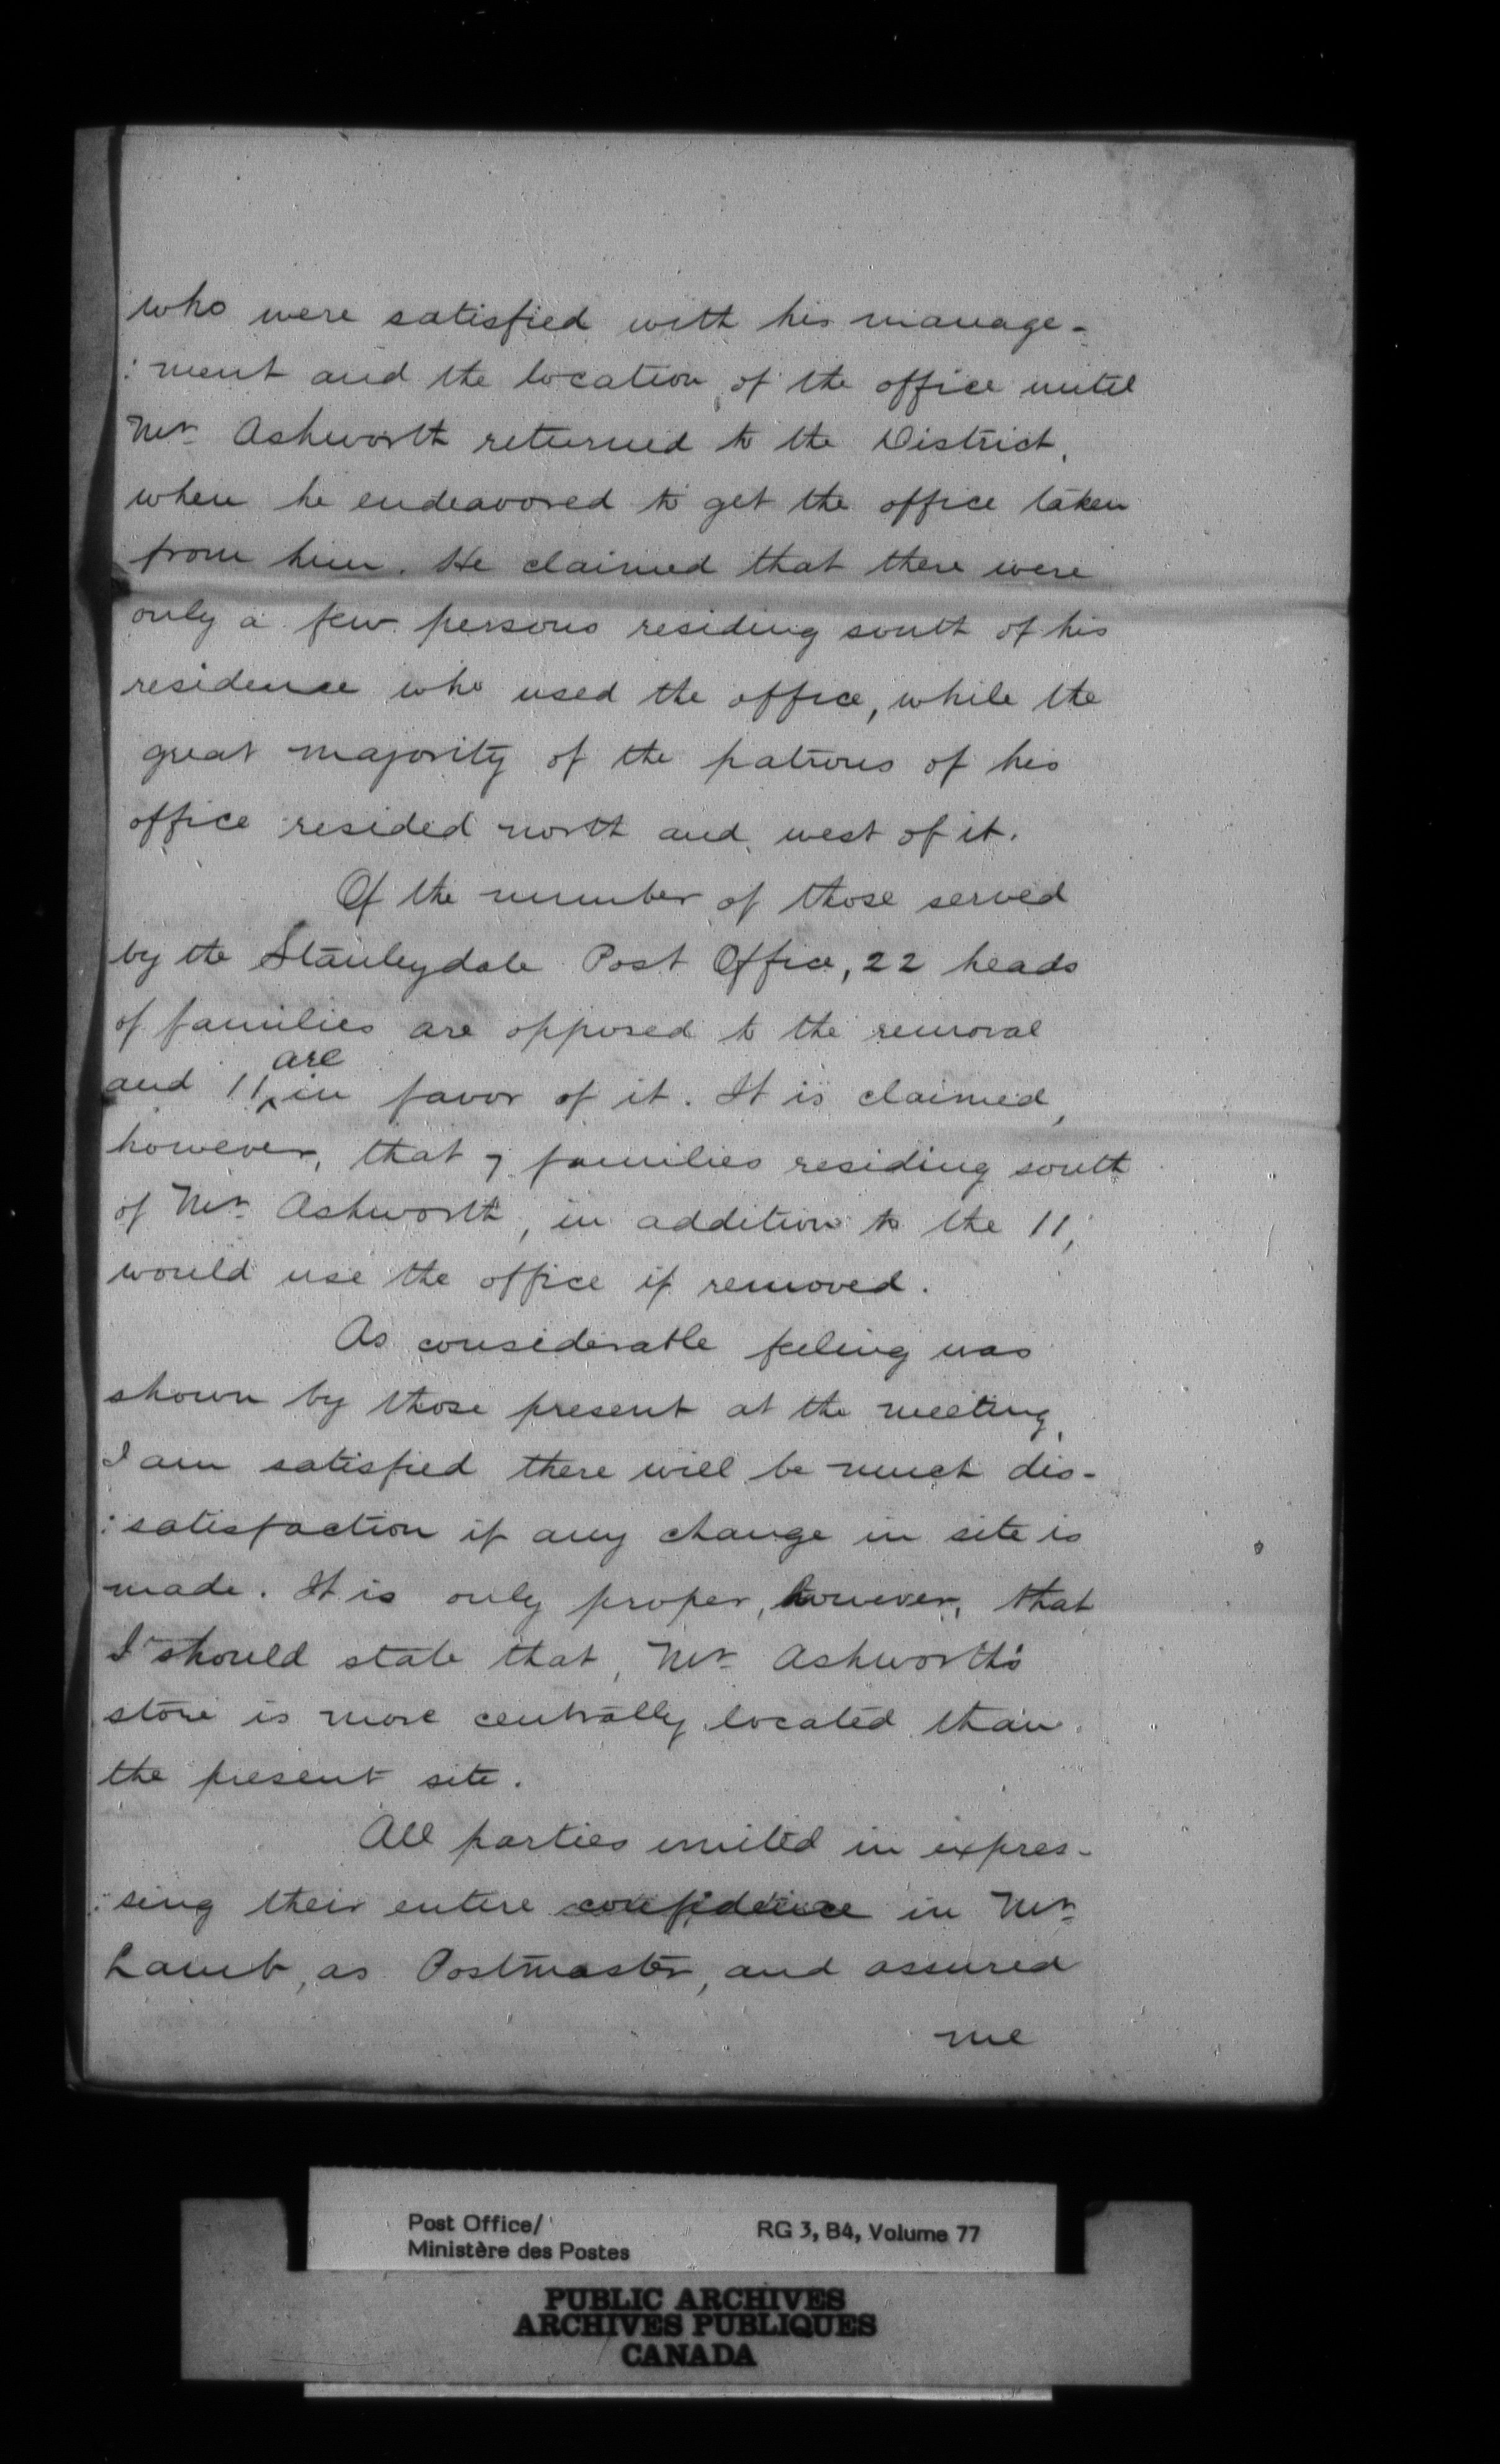 who were satisfied with his manage-
:ment and the location of the office until
Mr. Ashworth returned to the District,
when he endeavored to get the office taken
from him. He claimed that there were
only a few persons residing south of his
residence who used the office, while the
great majority of the patrons of his
office resided north and west of it.
Of the number of those served
by the Stanleydale Post Office, 22 heads
of families are opposed to the removal
are
and 11 in favor of it. It is claimed,
however, that 7 families residing south
of Mr. Ashworth, in addition to the 11,
would use the office if removed.
As considerable feeling was
shown by those present at the meeting,
I am satisfied there will be much dis-
:satisfaction if any change in site is
made. It is only proper, however, that
I should state that, Mr. Ashworth's
store is more centrally located than
the present site.
All parties united in expres-
:sing their entire confidence in Mr.
Lamb, as Postmaster, and assured
me
Post Office/
Ministère des Postes
RG 3, B4, Volume 77
PUBLIC ARCHIVES
ARCHIVES PUBLIQUES
CANADA